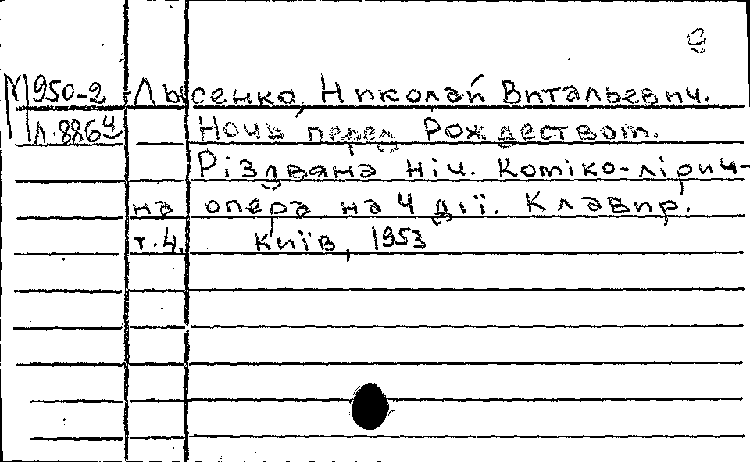 М950-2 Лысенко, Николай Витальевич.
Л.8864 Ночь перед Рождеством.
Різдвяна ніч. Коміко-лірич-
на опера на 4 дії. Клавир.
т.4. Київ, 1953